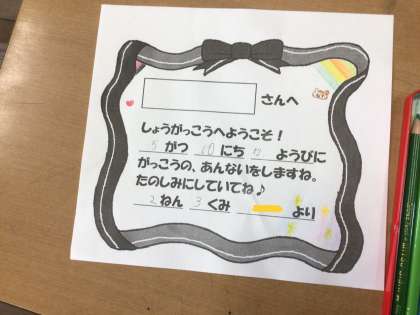 さんへ
しょうがっこうへようこそ！
5 がつ 10 にち ようびに
がっこうの、あんないをしますね。
たのしみにしていてね♪
2 ねん 3 くみ より